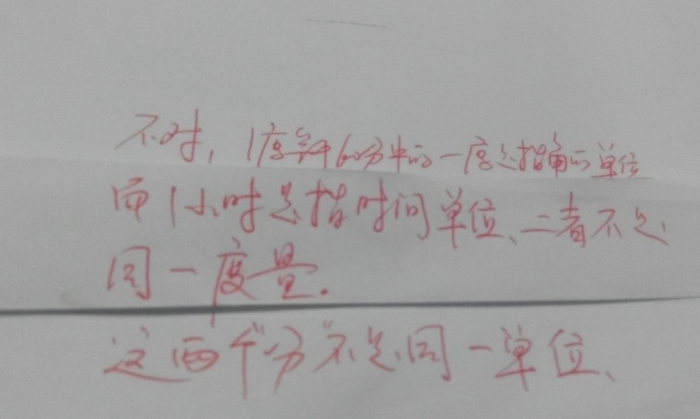 不对，1度等于60分中的一度是指角的单位
而1小时是指时间单位、二者不是
同一度量.
这两个"分"不是同一单位、